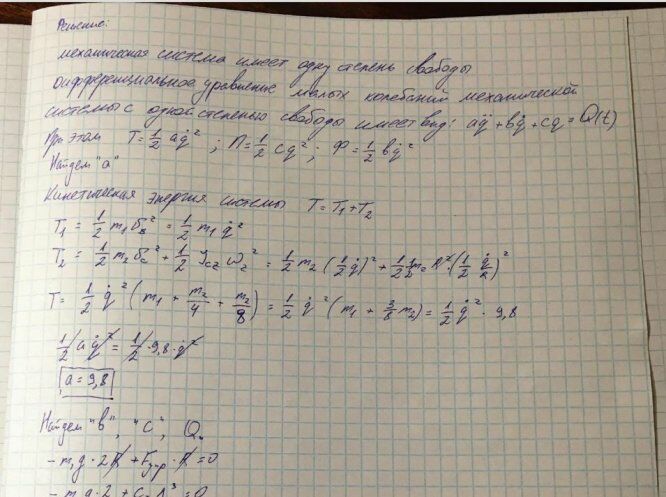 Решение:
механическая система имеет одну степень свободы
Дифференциальное уравнение малых колебаний механической
системы с одной степенью свободы имеет вид: aq̈ + bq̇ + cq = Q(t)
При этом T = 1/2 aq̇²; П = 1/2 cq²; Ф = 1/2 bq̇²
Найдем "a"
Кинетическая энергия системы T = T₁ + T₂
T₁ = 1/2 m₁ϑ_B² = 1/2 m₁q̇²
T₂ = 1/2 m₂ϑ_C² + 1/2 J_C₂ ω₂² = 1/2 m₂(1/2 q̇)² + 1/2 1/2 m₂ R² · (1/2 q̇/R)²
T = 1/2 q̇² (m₁ + m₂/4 + m₂/8) = 1/2 q̇² (m₁ + 3/8 m₂) = 1/2 q̇² · 9,8
1/2 aq̇² = 1/2 · 9,8 · q̇²
a = 9,8
Найдем "b", "c", Q.
- m₁g · 2R + Fупр · R = 0
- m₁g · 2 + = 0